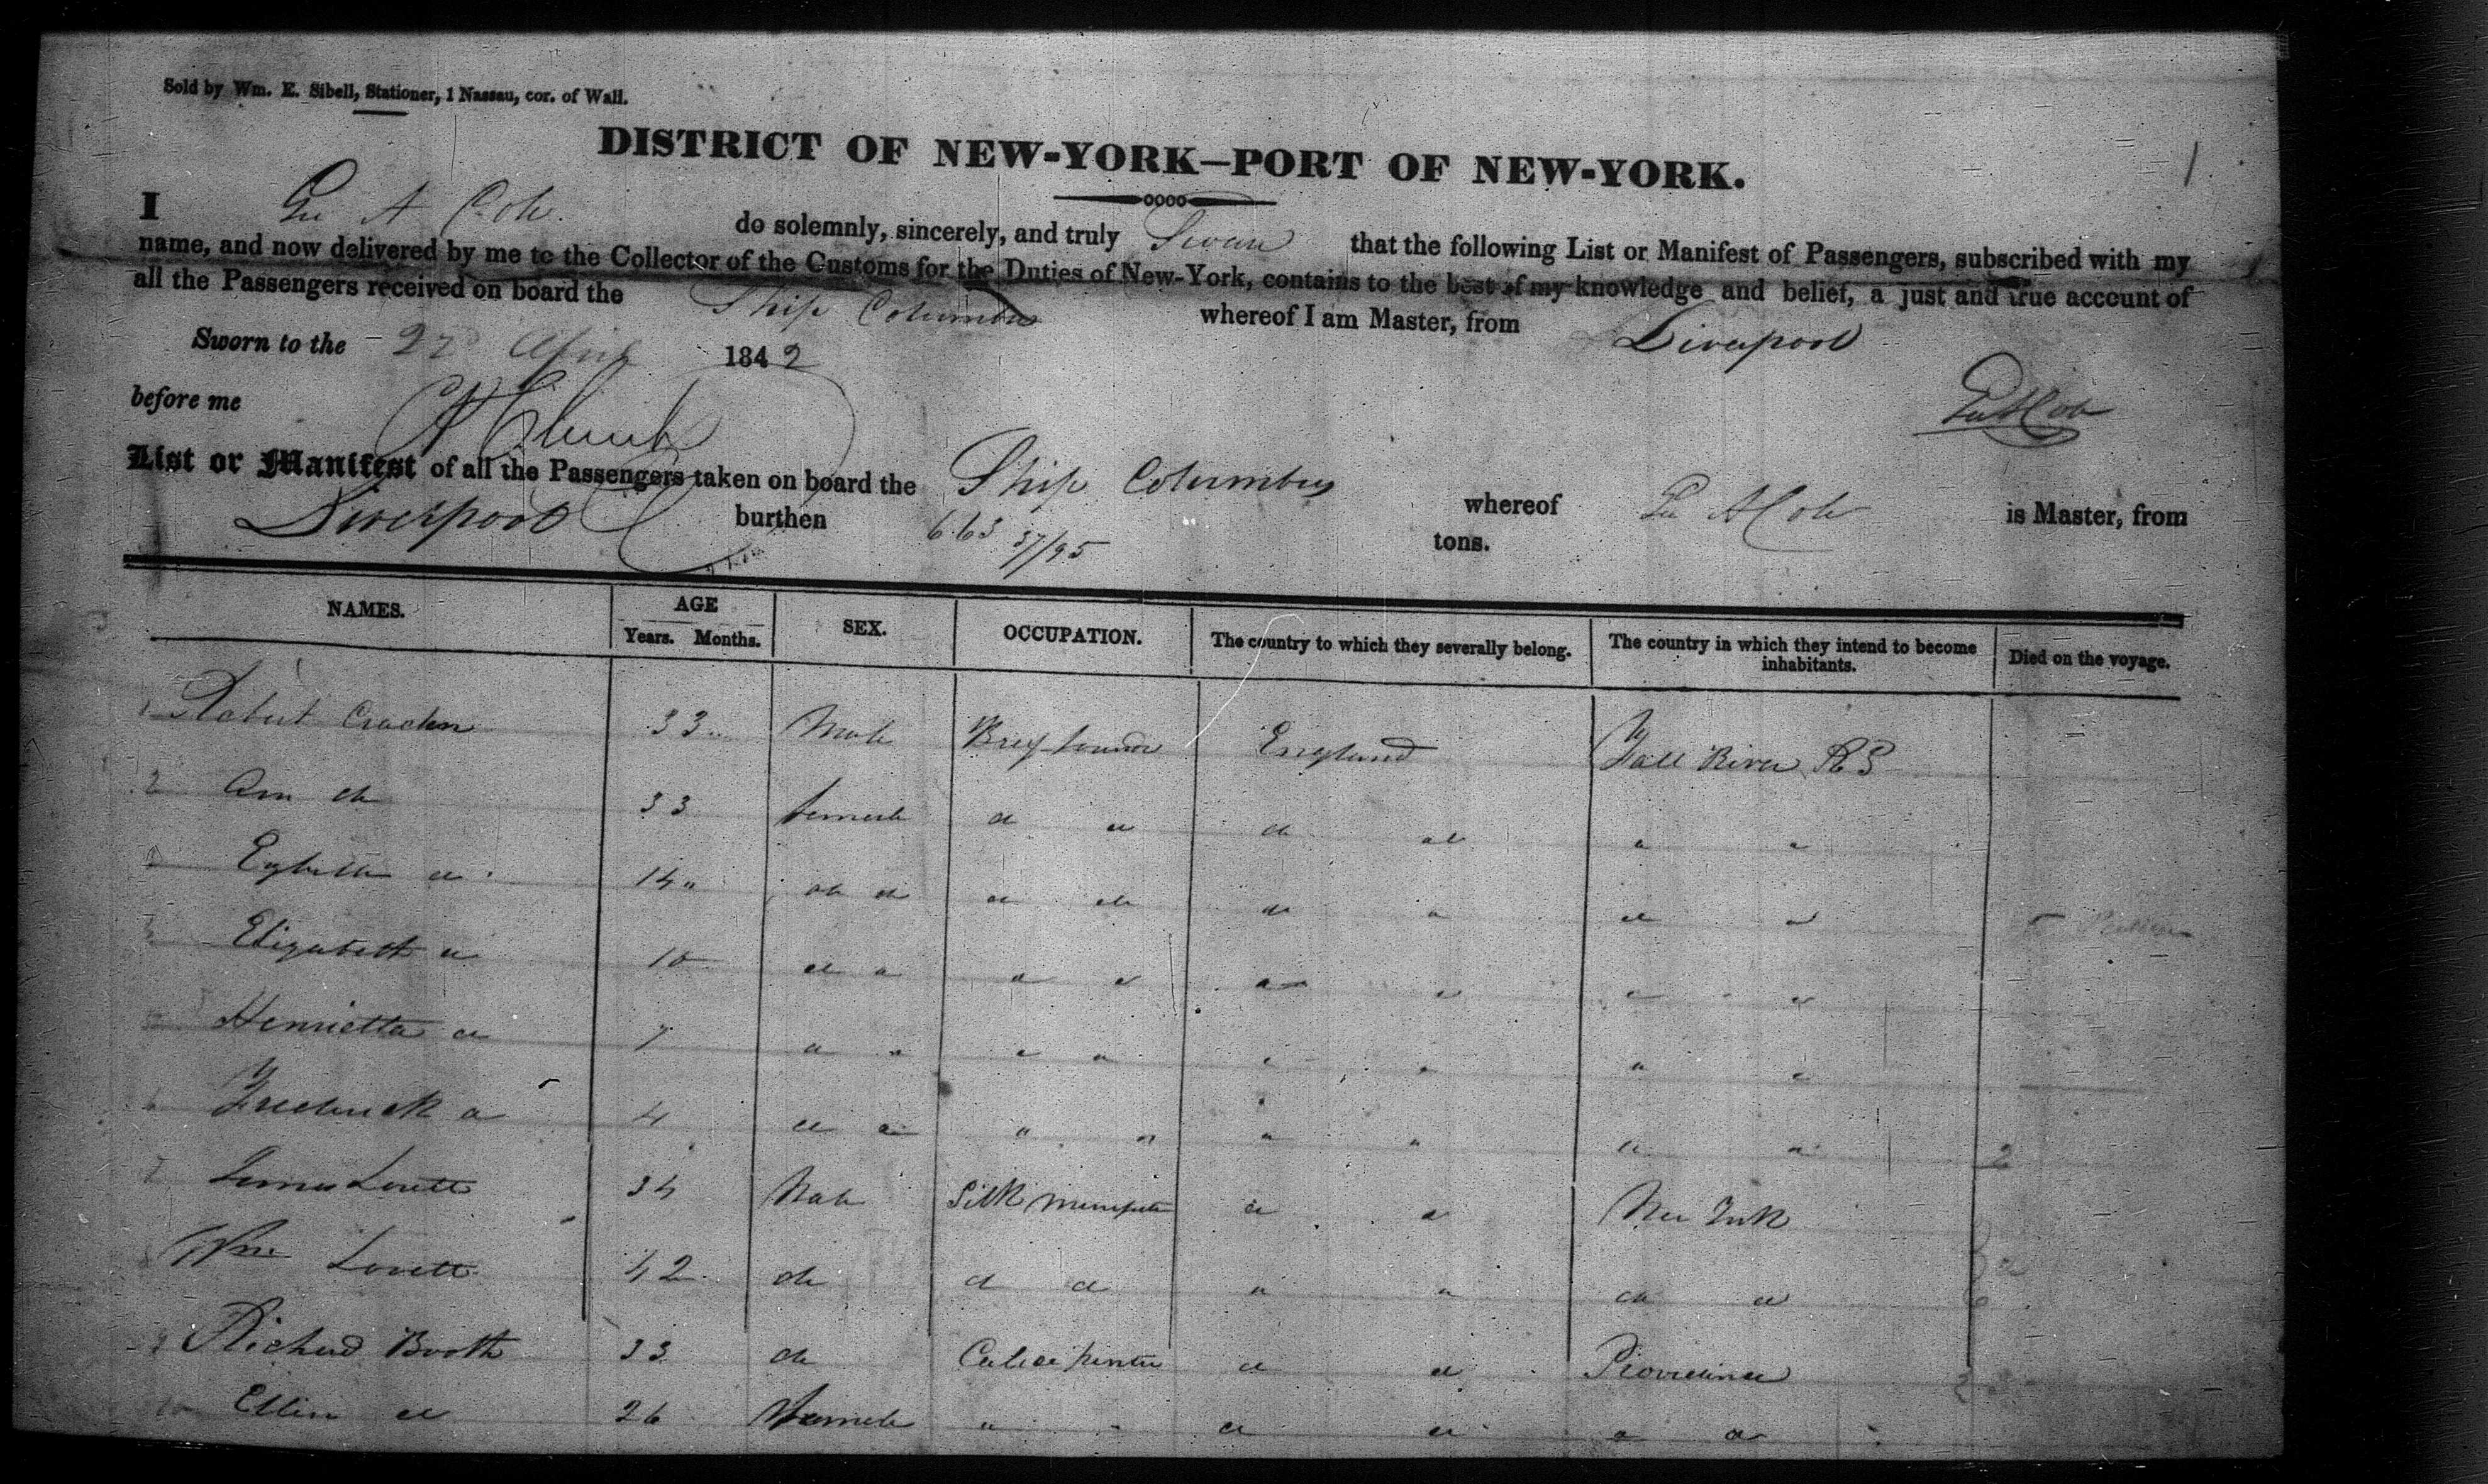 Sold by Wm. E. Sibell, Stationer, 1 Nassau, cor. of Wall.
DISTRICT OF NEW-YORK—PORT OF NEW-YORK.
I A Cole do solemnly, sincerely, and truly Swear that the following List or Manifest of Passengers, subscribed with my
name, and now delivered by me to the Collector of the Customs for the Duties of New-York, contains to the best of my knowledge and belief, a just and true account of
all the Passengers received on board the Ship Columbus whereof I am Master, from Liverpool
Sworn to the April 1842
before me
List or Manifest of all the Passengers taken on board the Ship Columbus whereof A Cole is Master, from
Liverpool burthen 663 37/95 tons.
NAMES. AGE Years. Months. SEX. OCCUPATION. The country to which they severally belong. The country in which they intend to become inhabitants. Died on the voyage.
1 Robert 33 Male England Fall River
2 Ann do 33 female do do do do
do 14 do do do do do do
Elizabeth do 10 do do do do do do
Henrietta do 7 " " " " " "
6 Frederick do 4 do do " " " " " "
7 James Lovett 34 Male Silk do do New York
Wm Lovett 42 do do do " " do do
9 Richard Booth 33 do Calico printer do do Providence
10 Ellin do 26 female " " do do do do